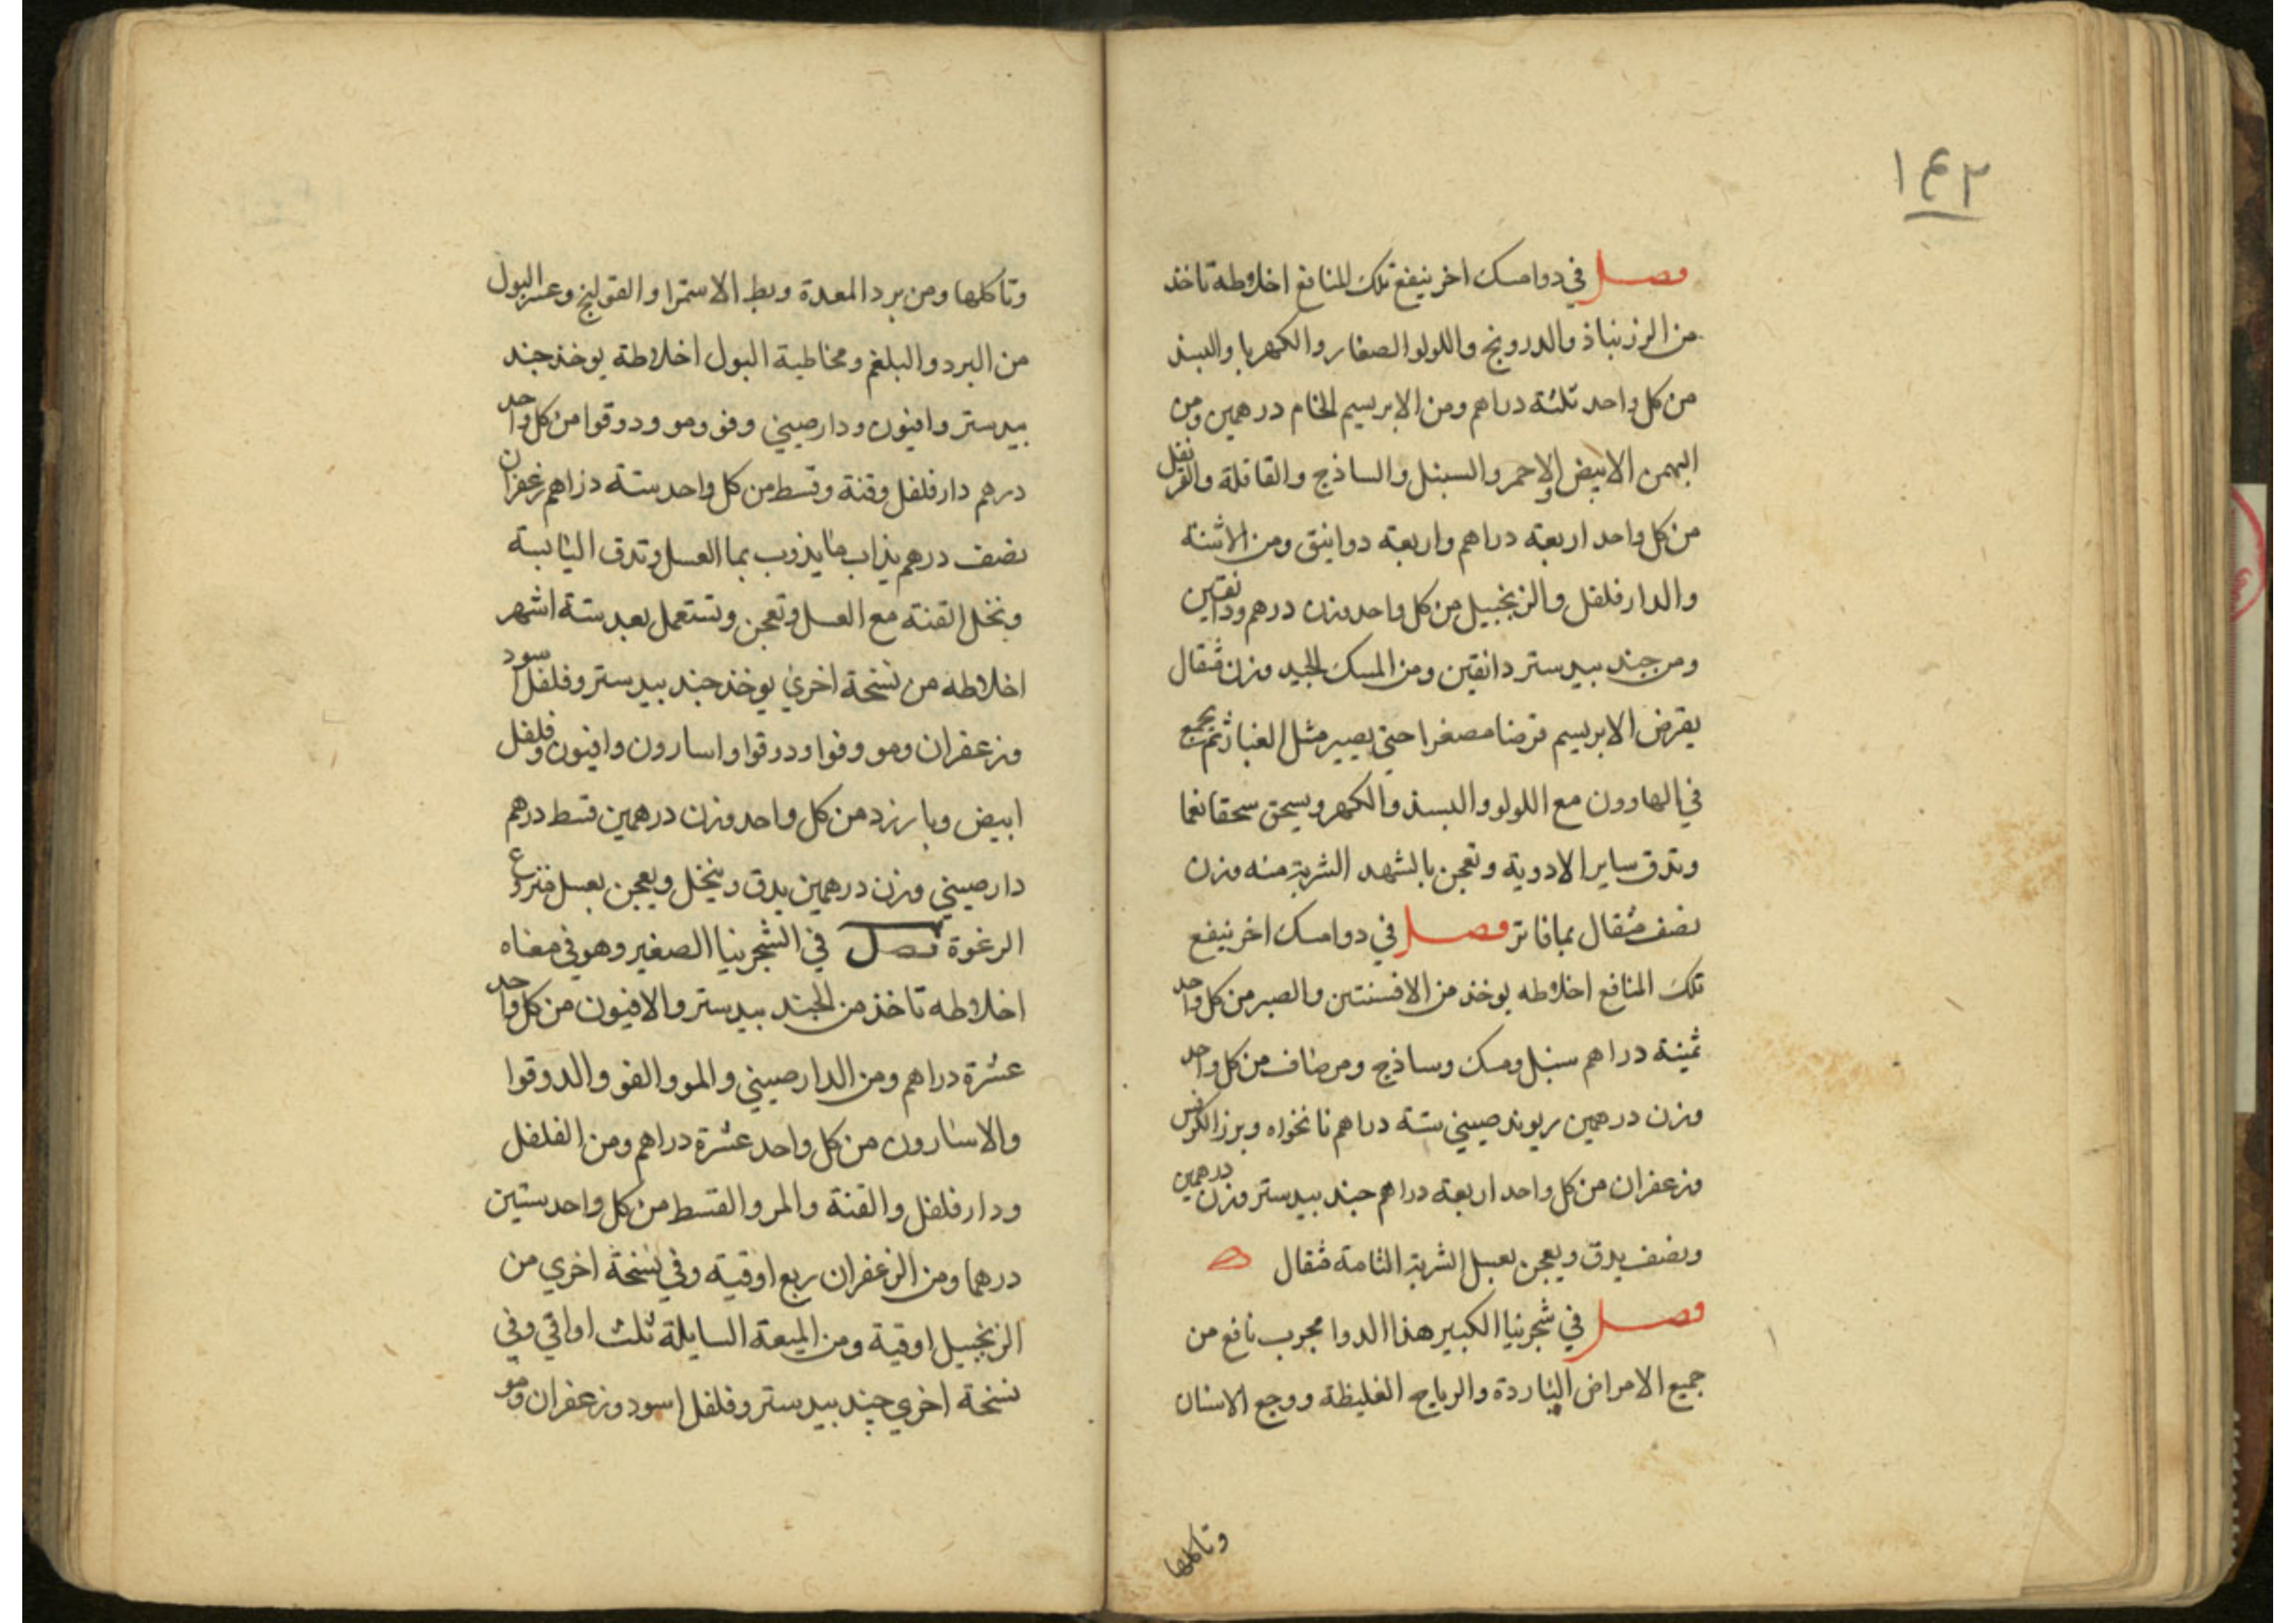 ١٤٢
فصل في دوامسك اخر ينفع تلك المنافع اخلاطه تاخذ
من الزرنباذ والدرونج واللولو الصغار والكهربا والبسذ
من كل واحد ثلثة دراهم ومن الابريسم الخام درهمين ومن
البهمن الابيض والاحمر والسنبل والساذج والقاقلة والقرنفل
من كل واحد اربعة دراهم واربعة دوانيق ومن الاشنة
والدارفلفل والزنجبيل من كل واحد وزن درهم ودانقين
ومن جند بيدستر دانقين ومن المسك الجيد وزن مثقال
يقرض الابريسم قرضا مصغرا حتى يصير مثل الغبار ثم يجمع
في الهاوون مع اللولو والبسذ والكهر ويسحق سحقا نعما
وتدق ساير الادوية وتعجن بالشهد الشربة منه وزن
نصف مثقال بما فاتر فصل في دوامسك اخر ينفع
تلك المنافع اخلاطه يوخذ من الافسنتين والصبر من كل واحد
ثمنية دراهم سنبل ومسك وساذج ومرصاف من كل واحد
وزن درهمين ريوند صيني ستة دراهم نانخواه وبرز الكرفس
وزعفران من كل واحد اربعة دراهم جند بيدستر وزن درهمين
ونصف يدق ويعجن بعسل الشربة التامة مثقال
فصل في شجرنيا الكبير هذا الدوا مجرب نافع من
جميع الامراض الباردة والرياح الغليظة ووجع الاسنان
وتاكلها
وتاكلها ومن برد المعدة وبط الاستمرا والقولنج وعسر البول
من البرد والبلغم ومخاطية البول اخلاطة يوخذ جند
بيدستر وافيون ودارصيني وفو ومو ودوقوا من كل واحد
درهم دارفلفل وقنة وقسط من كل واحد ستة دراهم زعفران
نصف درهم يذاب ما يذوب بما العسل وتدق اليابسة
وتخل القنة مع العسل وتعجن وتستعمل بعد ستة اشهر
اخلاطه من نسخة اخري يوخذ جند بيدستر وفلفل اسود
وزعفران ومو وفوا ودرقوا واسارون وافيون وفلفل
ابيض وبارزد من كل واحد وزن درهمين قسط درهم
دارصيني وزن درهمين يدق وينخل ويعجن بعسل منزوع
الرغوة فصل في الشجرنيا الصغير وهو في معناه
اخلاطه تاخذ من الجند بيدستر والافيون من كل واحد
عشرة دراهم ومن الدارصيني والمو والفو والدوقوا
والاسارون من كل واحد عشرة دراهم ومن الفلفل
ودارفلفل والقنة والمر والقسط من كل واحد ستين
درهما ومن الزعفران ربع اوقية وفي نسخة اخري من
الزنجبيل اوقية ومن الميعة السايلة ثلث اواقي وفي
نسخة اخري جند بيدستر وفلفل اسود وزعفران ومو